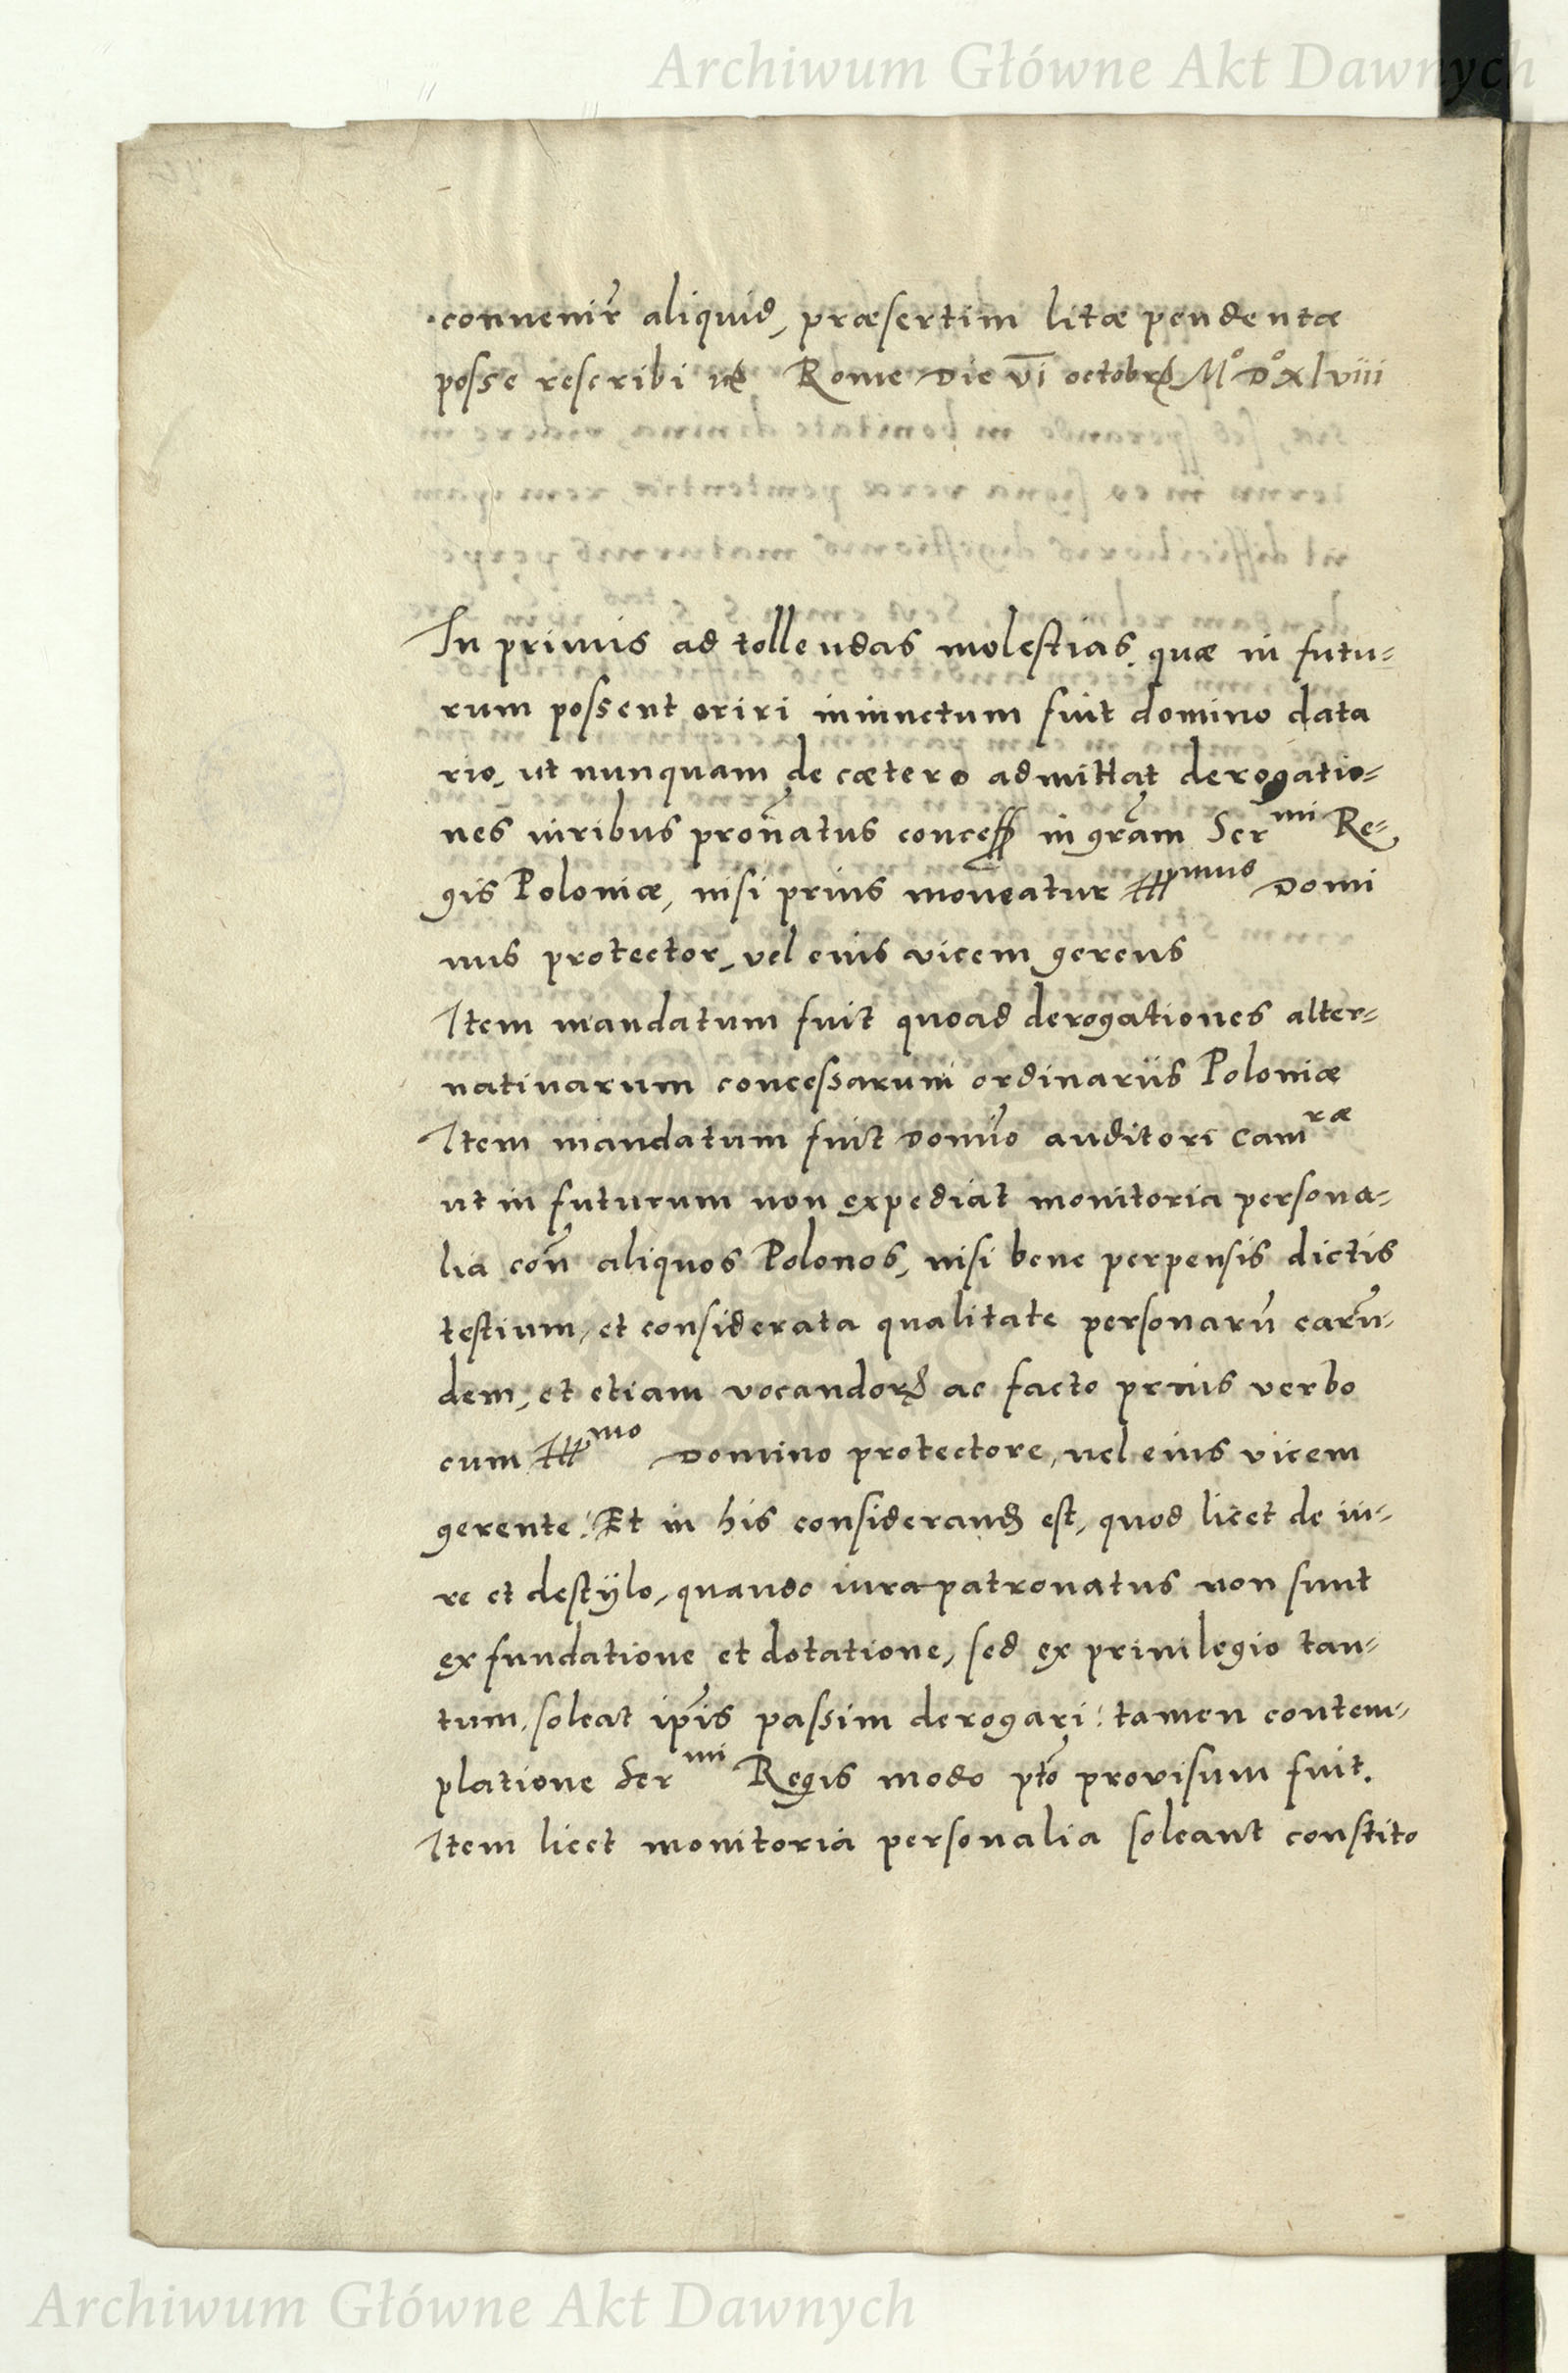 Archiwum Główne Akt Dawnych
convenir̃ aliquid, præsertim litæ pendentæ
posse rescribi Rome Die VI octobrꝭ M° D° xlviii
In primis ad tollendas molestias, quæ in futu=
rum possent oriri iniunctum fuit domino data
rio, ut nunquam de cætero admittat derogatio=
nes iuribus pronatus concess in gram̃ Ser^mi Re=
gis Poloniæ, nisi prius moveatur Ill^mus Domi
nus protector, vel eius vicem gerens
Item mandatum fuit quoad derogationes alter=
nativarum concessarum ordinariis Poloniæ
Item mandatum fuit Domĩo auditori Cam^ræ
ut in futurum non expediat monitoria persona=
lia con̄ aliquos Polonos, nisi bene perpensis dictis
testium, et considerata qualitate personarũ earũ=
dem, et etiam vocandorꝝ ac facto prius verbo
cum Ill^mo Domino protectore, vel eius vicem
gerente: Et in his considerand est, quod licet de iu=
re et de stÿlo, quando iura patronatus non sunt
ex fundatione et dotatione, sed ex privilegio tan=
tum, soleat ip̃is passim derogari: tamen contem=
platione Ser^mi Regis modo pto provisum fuit.
Item licet monitoria personalia soleant constito
Archiwum Główne Akt Dawnych